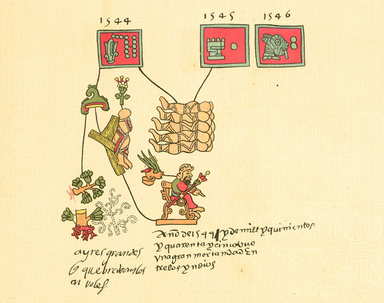 1544
1545
1546
ayres grandes
q quebravan los
Año de 1544 y de mill y quinientos
y quarenta y cinco uvo
una gran mortandad en
tre los yndios